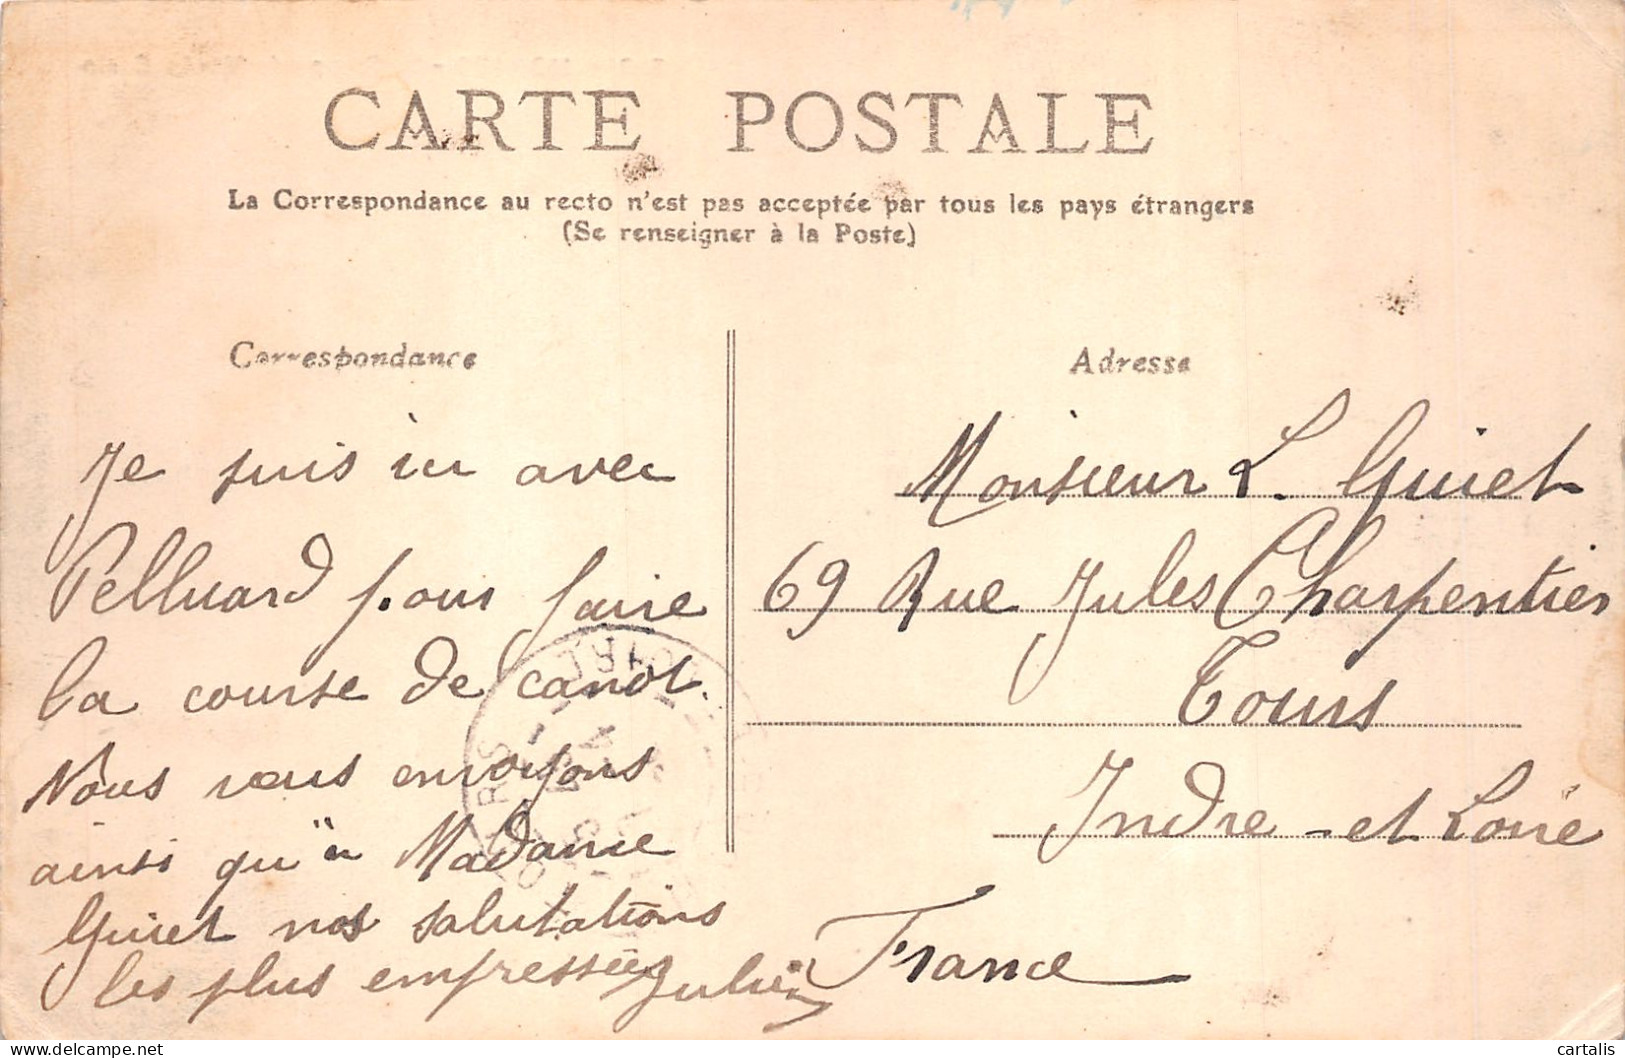 CARTE POSTALE
La Correspondance au recto n'est pas acceptée par tous les pays étrangers
(Se renseigner à la Poste)
Correspondance
Je suis ici avec
Pelluard pour faire
la course de canot.
Nous vous envoyons
ainsi qu'à Madame
Guiet nos salutations
les plus empressées
Julien
Adresse
Monsieur L. Guiet
69 Rue Jules Charpentier
Tours
Indre-et Loire
France
cartalis